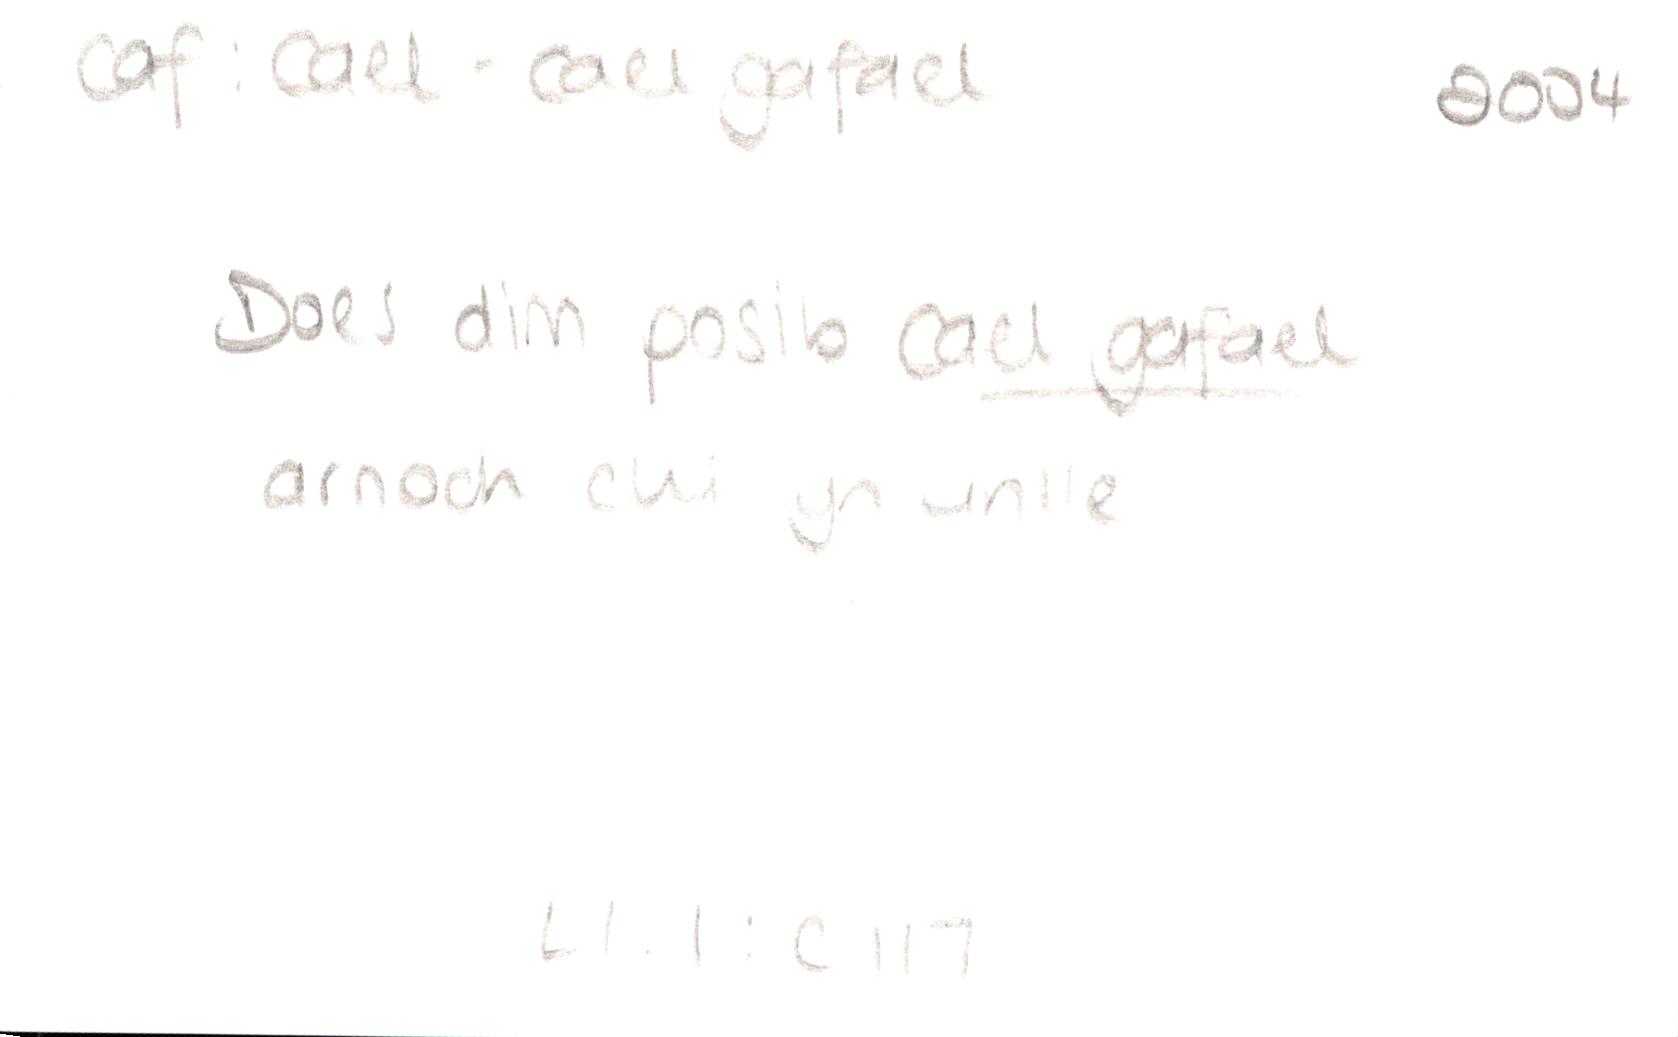 caf: cael - cael gafael 2004
Does dim posib cael gafael
arnoch chi yr unlle
Ll. 1: C 117